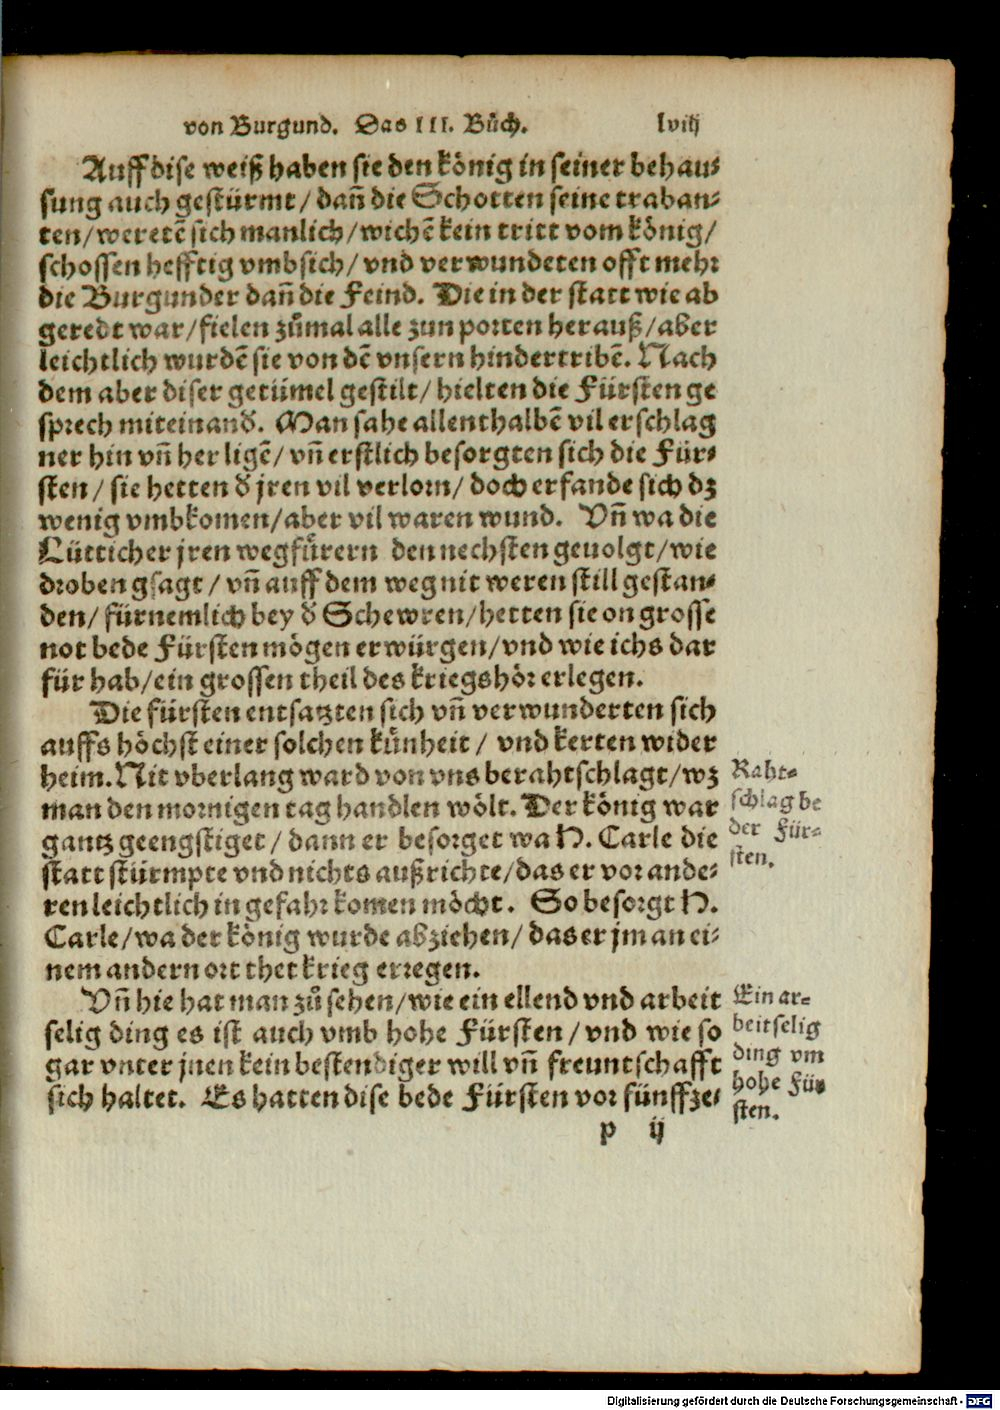 von Burgund. Das III. Bůch. lviij
Auff dise weiß haben sie den könig in seiner behau⸗
sung auch gestürmt / dañ die Schotten seine traban⸗
ten / weretē sich manlich / wichē kein tritt vom könig /
schossen hefftig vmbsich / vnd verwundeten offt mehr
die Burgunder dañ die Feind. Die in der statt wie ab
geredt war / fielen zůmal alle zun porten herauß / aber
leichtlich wurdē sie von dē vnsern hindertribē. Nach
dem aber diser getümel gestilt / hielten die Fürsten ge
sprech miteinand. Man sahe allenthalbē vil erschlag
ner hin vñ her ligē / vñ erstlich besorgten sich die Für⸗
sten / sie hetten d̕ jren vil verlorn / doch erfande sich dz
wenig vmbkomen / aber vil waren wund. Vñ wa die
Lütticher jren wegfůrern den nechsten geuolgt / wie
droben gsagt / vñ auff dem weg nit weren still gestan⸗
den / fürnemlich bey d̕ Schewren / hetten sie on grosse
not bede Fürsten mögen erwürgen / vnd wie ichs dar
für hab / ein grossen theil des kriegshör erlegen.
Die fürsten entsatzten sich vñ verwunderten sich
auffs höchst einer solchen künheit / vnd kerten wider
heim. Nit vberlang ward von vns berahtschlagt / wz
man den mornigen tag handlen wölt. Der könig war
gantz geengstiget / dann er besorget wa H. Carle die
statt stürmpte vnd nichts außrichte / das er vor ande⸗
ren leichtlich in gefahr komen möcht. So besorgt H.
Carle / wa der könig wurde abziehen / das er jm an ei⸗
nem andern ort thet krieg erregen.
Raht⸗
schlag be
der Für⸗
sten.
Vñ hie hat man zů sehen / wie ein ellend vnd arbeit
selig ding es ist auch vmb hohe Fürsten / vnd wie so
gar vnter jnen kein bestendiger will vñ freuntschafft
sich haltet. Es hatten dise bede Fürsten vor fünffze⸗
Ein ar⸗
beitselig
ding vm
hohe Fü⸗
sten.
p ij
Digitalisierung gefördert durch die Deutsche Forschungsgemeinschaft - DFG